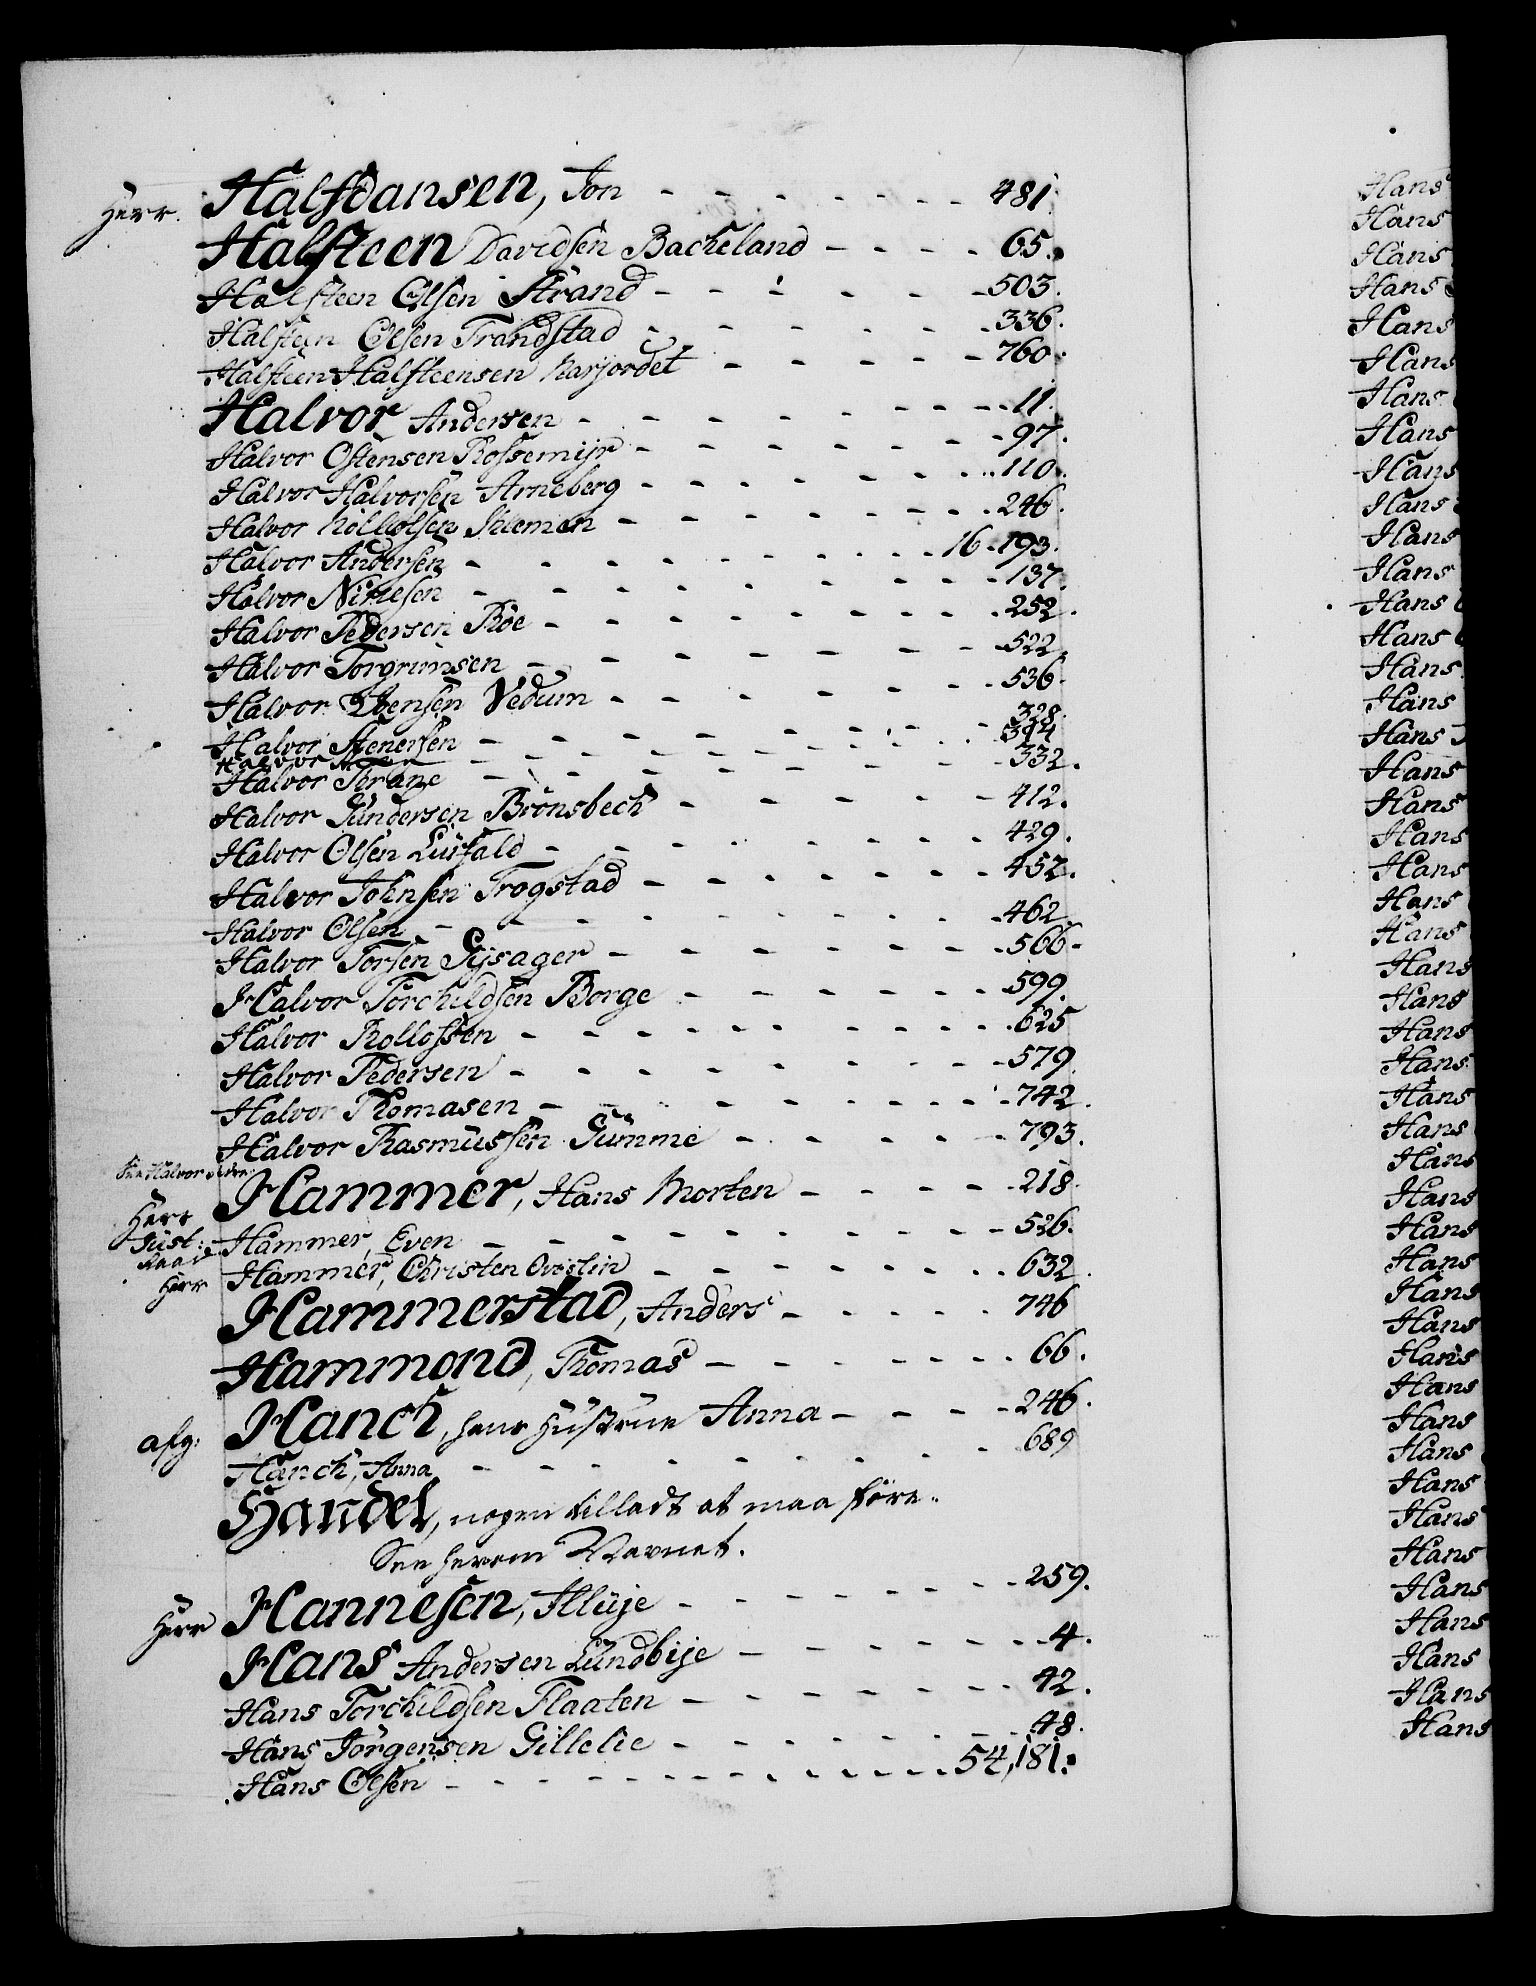 Herr. Halfdansen, Jon - - - - - - - 481.
Halfsteen Davidsen Backeland - - - - 65.
Halfsteen Olsen Strand - - - - - - 503.
Halfsteen Olsen Trandstad - - - - - - 336.
Halfsteen Halfsteensen Narjordet - - - - - 760.
Halvor Andersen - - - - - - - 11.
Halvor Ostensen Rossemijr - - - - - - 97.
Halvor Halvorsen Arneberg - - - - - - 110.
Halvor Nollolsen Klemen - - - - - - 246.
Halvor Andersen - - - - - - - 16. 193.
Halvor Nirnesen - - - - - - - 137.
Halvor Pedersen Röe - - - - - - - 252.
Halvor Torgrimsen - - - - - - - 522.
Halvor Iversen Vedum - - - - - - 536.
Halvor Stenersen - - - - - - - 328.
Halvor - - - - - - - 344
Halvor Thrane - - - - - - - 332.
Halvor Gundersen Brönsbech - - - - - 412.
Halvor Olsen Lurfald - - - - - - - 429.
Halvor Johnsen Trogstad - - - - - - 452.
Halvor Olsen - - - - - - - - 462.
Halvor Torsen Gijsager - - - - - - 566.
Halvor Torchildsen Borge - - - - - 599.
Halvor Rollofsen - - - - - - - 625
Halvor Pedersen - - - - - - - 579.
Halvor Thomasen - - - - - - - 742.
Halvor Rasmussen Gumme - - - - - 793.
See Halvor
Herr Hammer, Hans Morten - - - - 218.
Just: Raad Hammer, Even - - - - - - - 526.
Herr Hammer, Christen Qvislin - - - - - - 632.
Hammerstad, Anders - - - - - 746
Hammond, Thomas - - - - - - - 66.
afg: Hanch, hans Hustrue Anna - - - - 246.
Hanch, Anna - - - - - - - 689
Handel, nogen tilladt at maa före.
See herom Navnet.
Herr Hannesen, Illuje - - - - - - 259.
Hans Andersen Lundbije - - - - - - 4.
Hans Torchildsen Flaaten - - - - - - 42.
Hans Jörgensen Gillelie - - - - - - 48.
Hans Olsen - - - - - - - 54, 181.
Hans
Hans
Hans
Hans
Hans
Hans
Hans
Hans
Hans
Hans
Hans
Hans
Hans
Hans
Hans
Hans
Hans
Hans
Hans
Hans
Hans
Hans
Hans
Hans
Hans
Hans
Hans
Hans
Hans
Hans
Hans
Hans
Hans
Hans
Hans
Hans
Hans
Hans
Hans
Hans
Hans
Hans
Hans
Hans
Hans
Hans
Hans